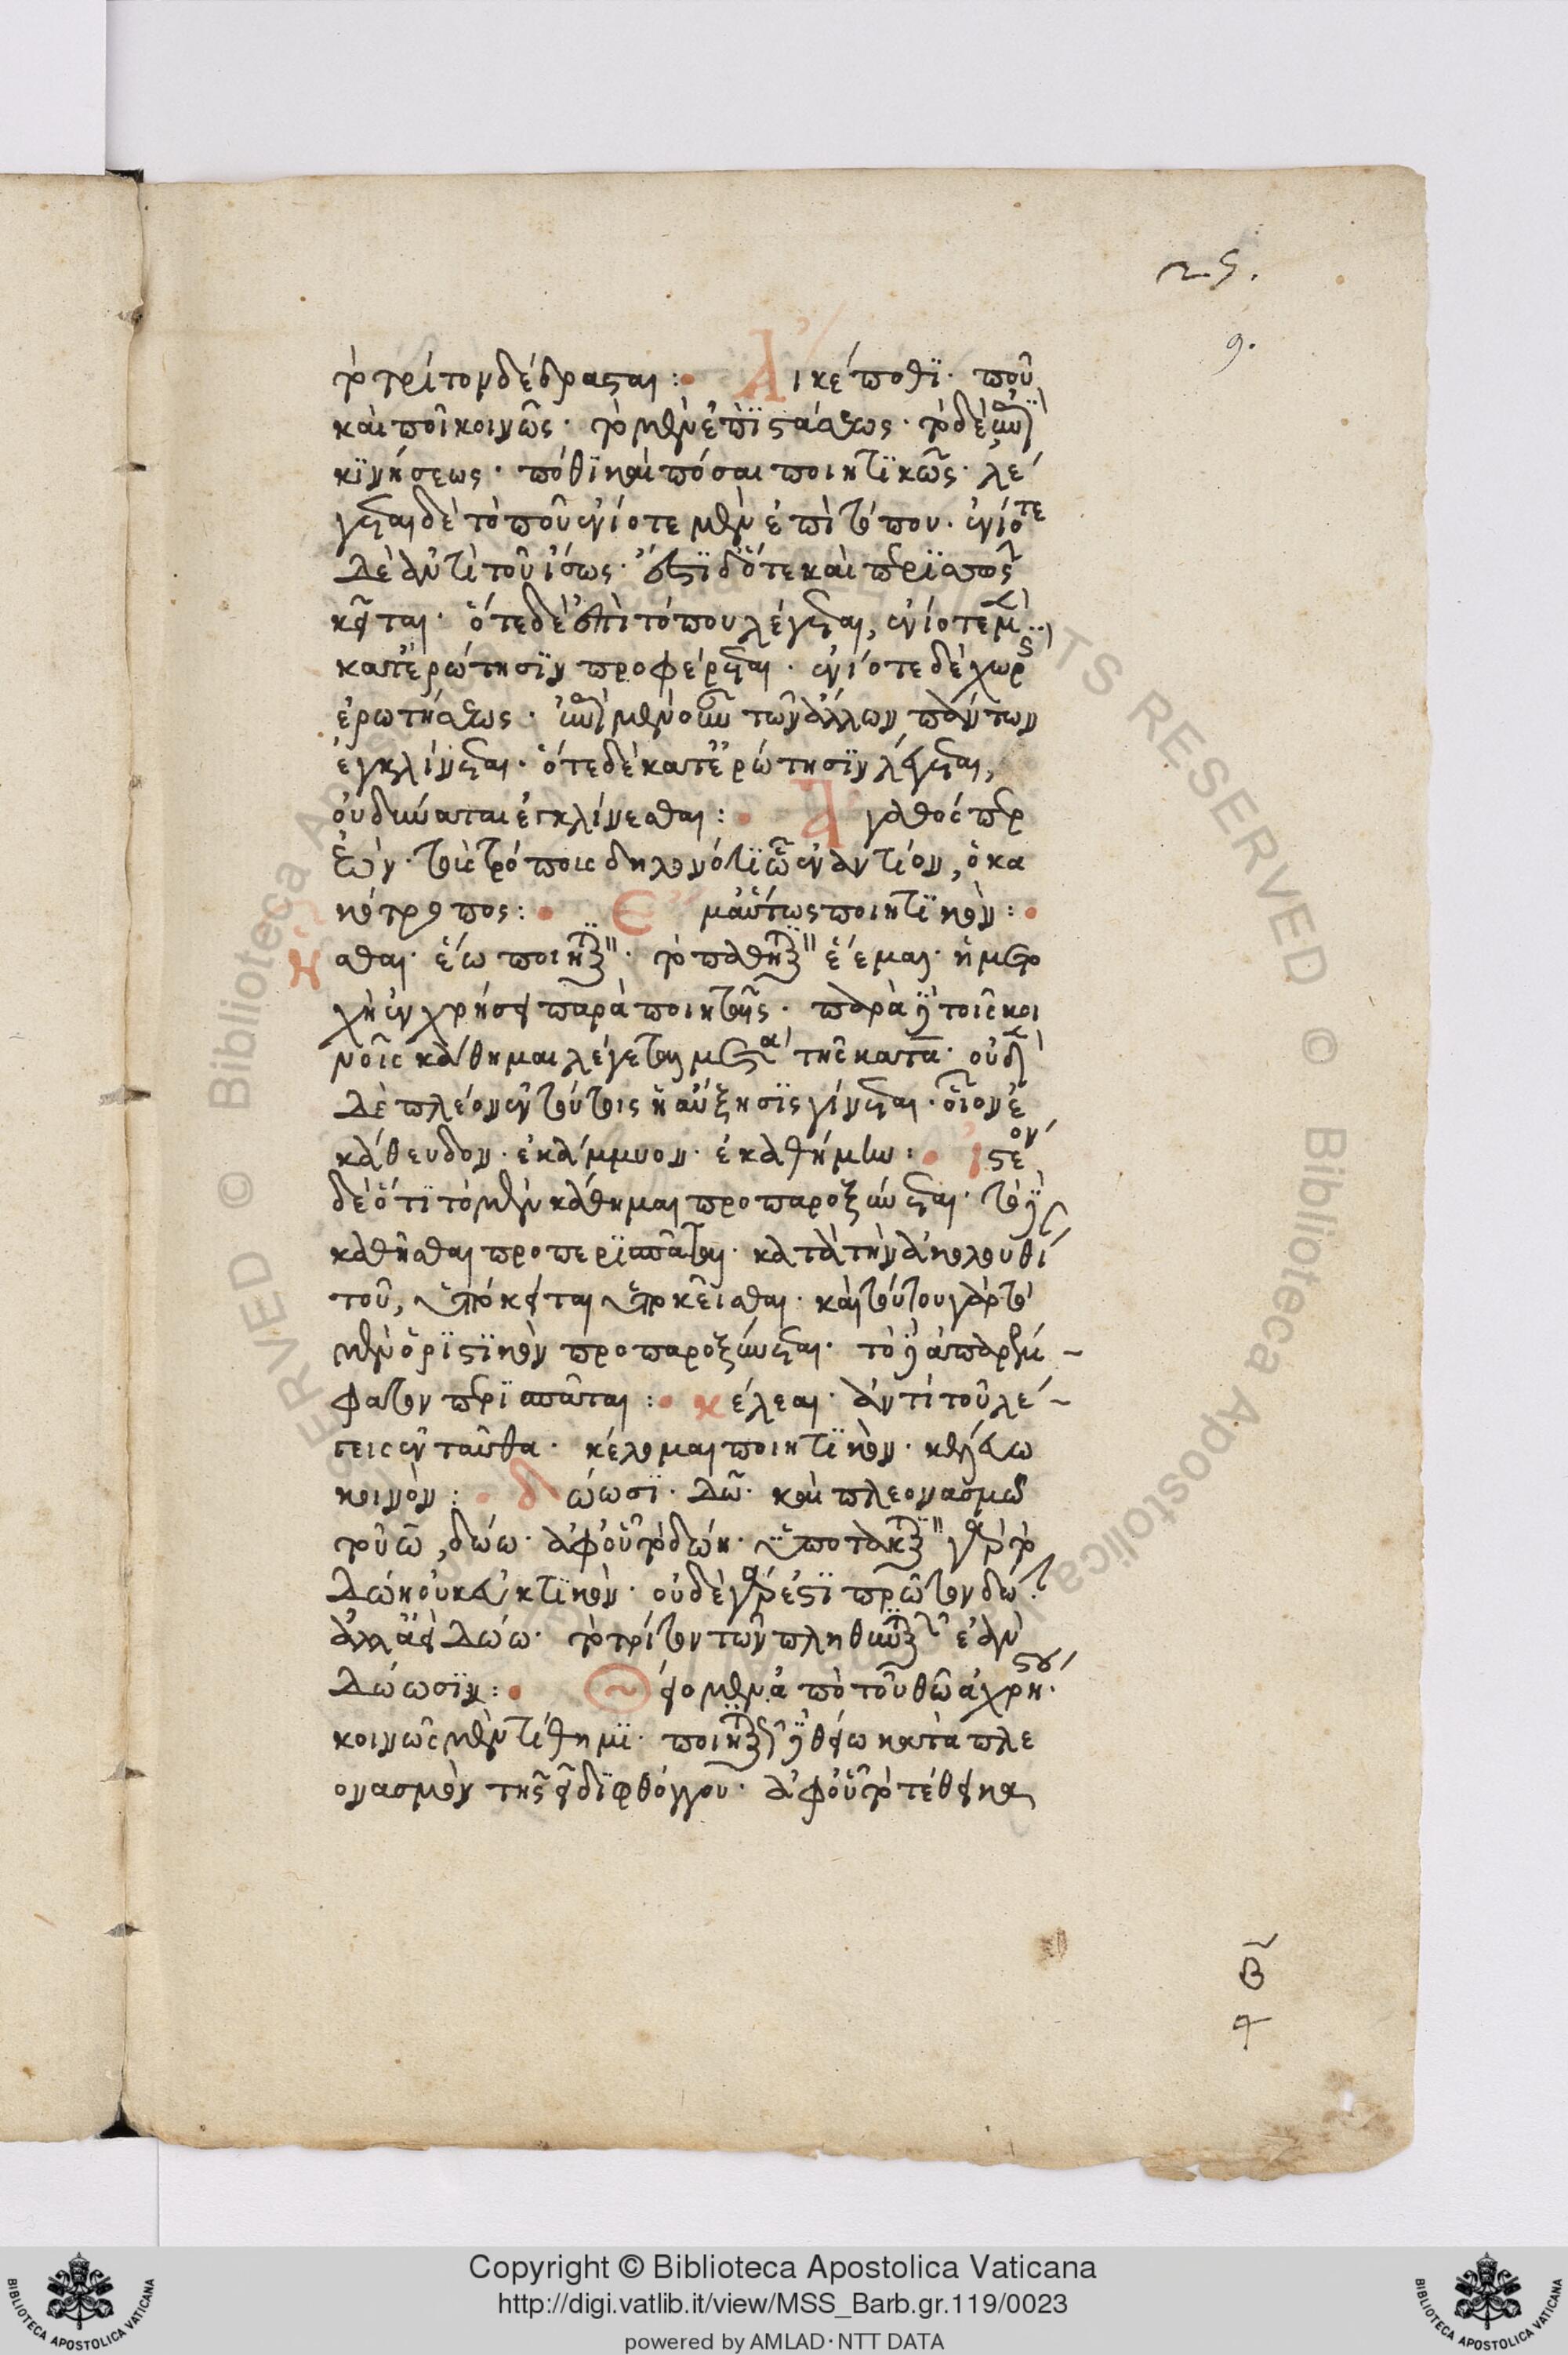 25.
9.
τὸ τρίτον δέδρασται :· Αἴ κέ ποθϊ · ποῦ
καὶ ποῖ κοινῶς · τὸ μὲν ἐπὶ στάσεως · τὸ δὲ ἀντὶ
κϊνήσεως · πόθϊ καὶ πόσαι ποιητϊκῶς · λέ
γεται δὲ τὸ ποῦ ἐνίοτε μὲν ἐπὶ τόπου · ἐνίοτε
δὲ ἀντὶ τοῦ ἴσως · ὅτε καὶ περϊσπως
κεῖται · ὅτε δὲ ἐπὶ τόπου λέγεται, ἐνίοτε μὲν
κατ' ἐρώτησϊν προφέρεται · ἐνίοτε δὲ χωρὶς
ἐρωτήσεως · μὲν οὖν τῶν ἄλλων πάντων
ἐγκλίνεται · ὅτε δὲ κατ' ἐρώτησϊν λέγεται,
οὐ δύναται ἐγκλίνεσθαι :· Ἀγαθός περ
ἐών · τοῖς τρόποις δηλονότϊ ὧ ἐναντίον, ὁ κα
κότροπος :· Ἐμαὕτως ποιητϊκὸν :·
Ἧσθαι · ἕω ποιητϊκὸν · τὸ παθητϊκὸν ἕεμαι · ἡ μετο
χὴ ἐν χρήσει παρὰ ποιηταῖς · παρὰ δὲ τοῖς κοι
νοῖς κάθημαι λέγεται μετὰ τῆς κατα · οὐδὲν
δὲ πλέον ἐν τούτοις ἡ αὔξησϊς γίνεται · οἷον ἐ
κάθευδον · ἐκάμμυον · ἐκαθήμην :· Ἰστέον
δὲ ὅτϊ τὸ μὲν κάθημαι προπαροξύνεται · τὸ δὲ
καθῆσθαι προπερϊσπᾶται · κατὰ τὴν ἀκολουθί
τοῦ, ὑπόκειται ὑποκεῖσθαι · καὶ τούτου γὰρ τὸ
μὲν ὁρϊστϊκὸν προπαροξύνεται · τὸ δὲ ἀπαρέμ ~
φατον περϊσπᾶται :· κέλεαι · ἀντὶ τοῦ λέ ~
γεις ἐνταῦθα · κέλομαι ποιητϊκὸν · κελεύω
κοινὸν :· δώωσϊ · δῶ · καὶ πλεονασμῶ
τοῦ ω, δώω · ἀφ' οὗ τὸ δώῃ · ὑποτακτϊκὸν γὰρ τὸ
δώῃ οὐκ εὐκτϊκὸν · οὐδὲ γάρ ἐστϊ πρῶτον
ἀλλ' ἐὰν δώω · τὸ τρίτον τῶν πληθυντϊκῶν ἐὰν
δώωσϊν :· Θείομεν ἀπὸ τοῦ θῶ ἀχρήστου ·
κοινῶς μὲν τίθημϊ · ποιητϊκῶς δὲ θείω κατὰ πλε
ονασμὸν τῆς ει δϊφθόγγου · ἀφ' οὗ τὸ τέθεικα
β
Copyright © Biblioteca Apostolica Vaticana
http://digi.vatlib.it/view/MSS_Barb.gr.119/0023
powered by AMLAD · NTT DATA
BIBLIOTECA APOSTOLICA VATICANA
BIBLIOTECA APOSTOLICA VATICANA